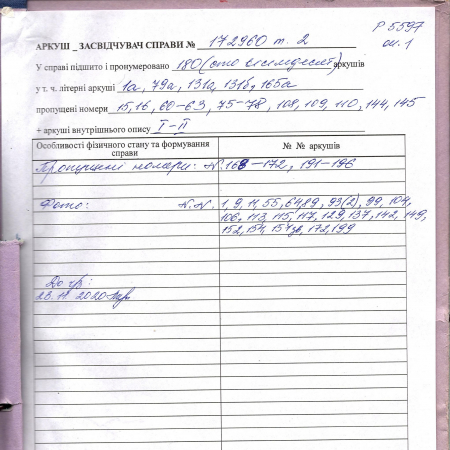 Р 5597
оп. 1
АРКУШ _ ЗАСВІДЧУВАЧ СПРАВИ № 172960 т. 2
У справі підшито і пронумеровано 180 (сто вісімдесят) аркушів
у т. ч. літерні аркуші 1а, 79а, 131а, 131б, 165а
пропущені номери 15, 16, 60-63, 75-78, 108, 109, 110, 144, 145
+ аркуші внутрішнього опису I-II
Особливості фізичного стану та формування справи
№ № аркушів
Пропущені номери: N. 168-172, 191-196
Фото: N.N. 1, 9, 11, 55, 64, 89, 93(2), 99, 104,
106, 113, 115, 117, 129, 137, 142, 149,
152, 154, 172, 199
23.11 2020